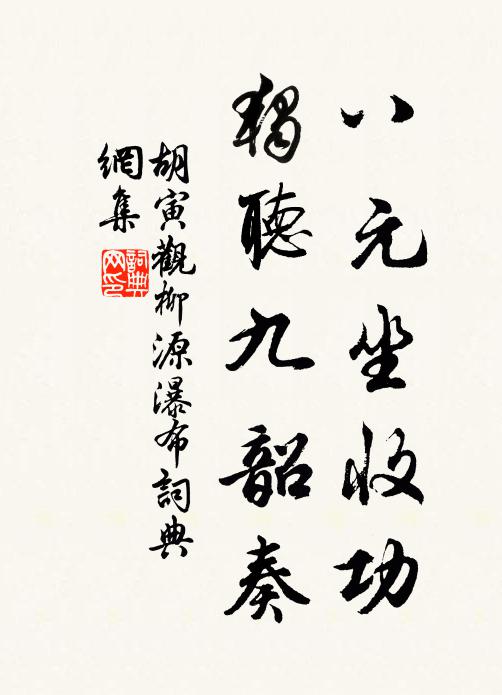 八元坐收功
獨聽九韶奏
胡寅觀柳源瀑布詞典
網集
詞典
网印